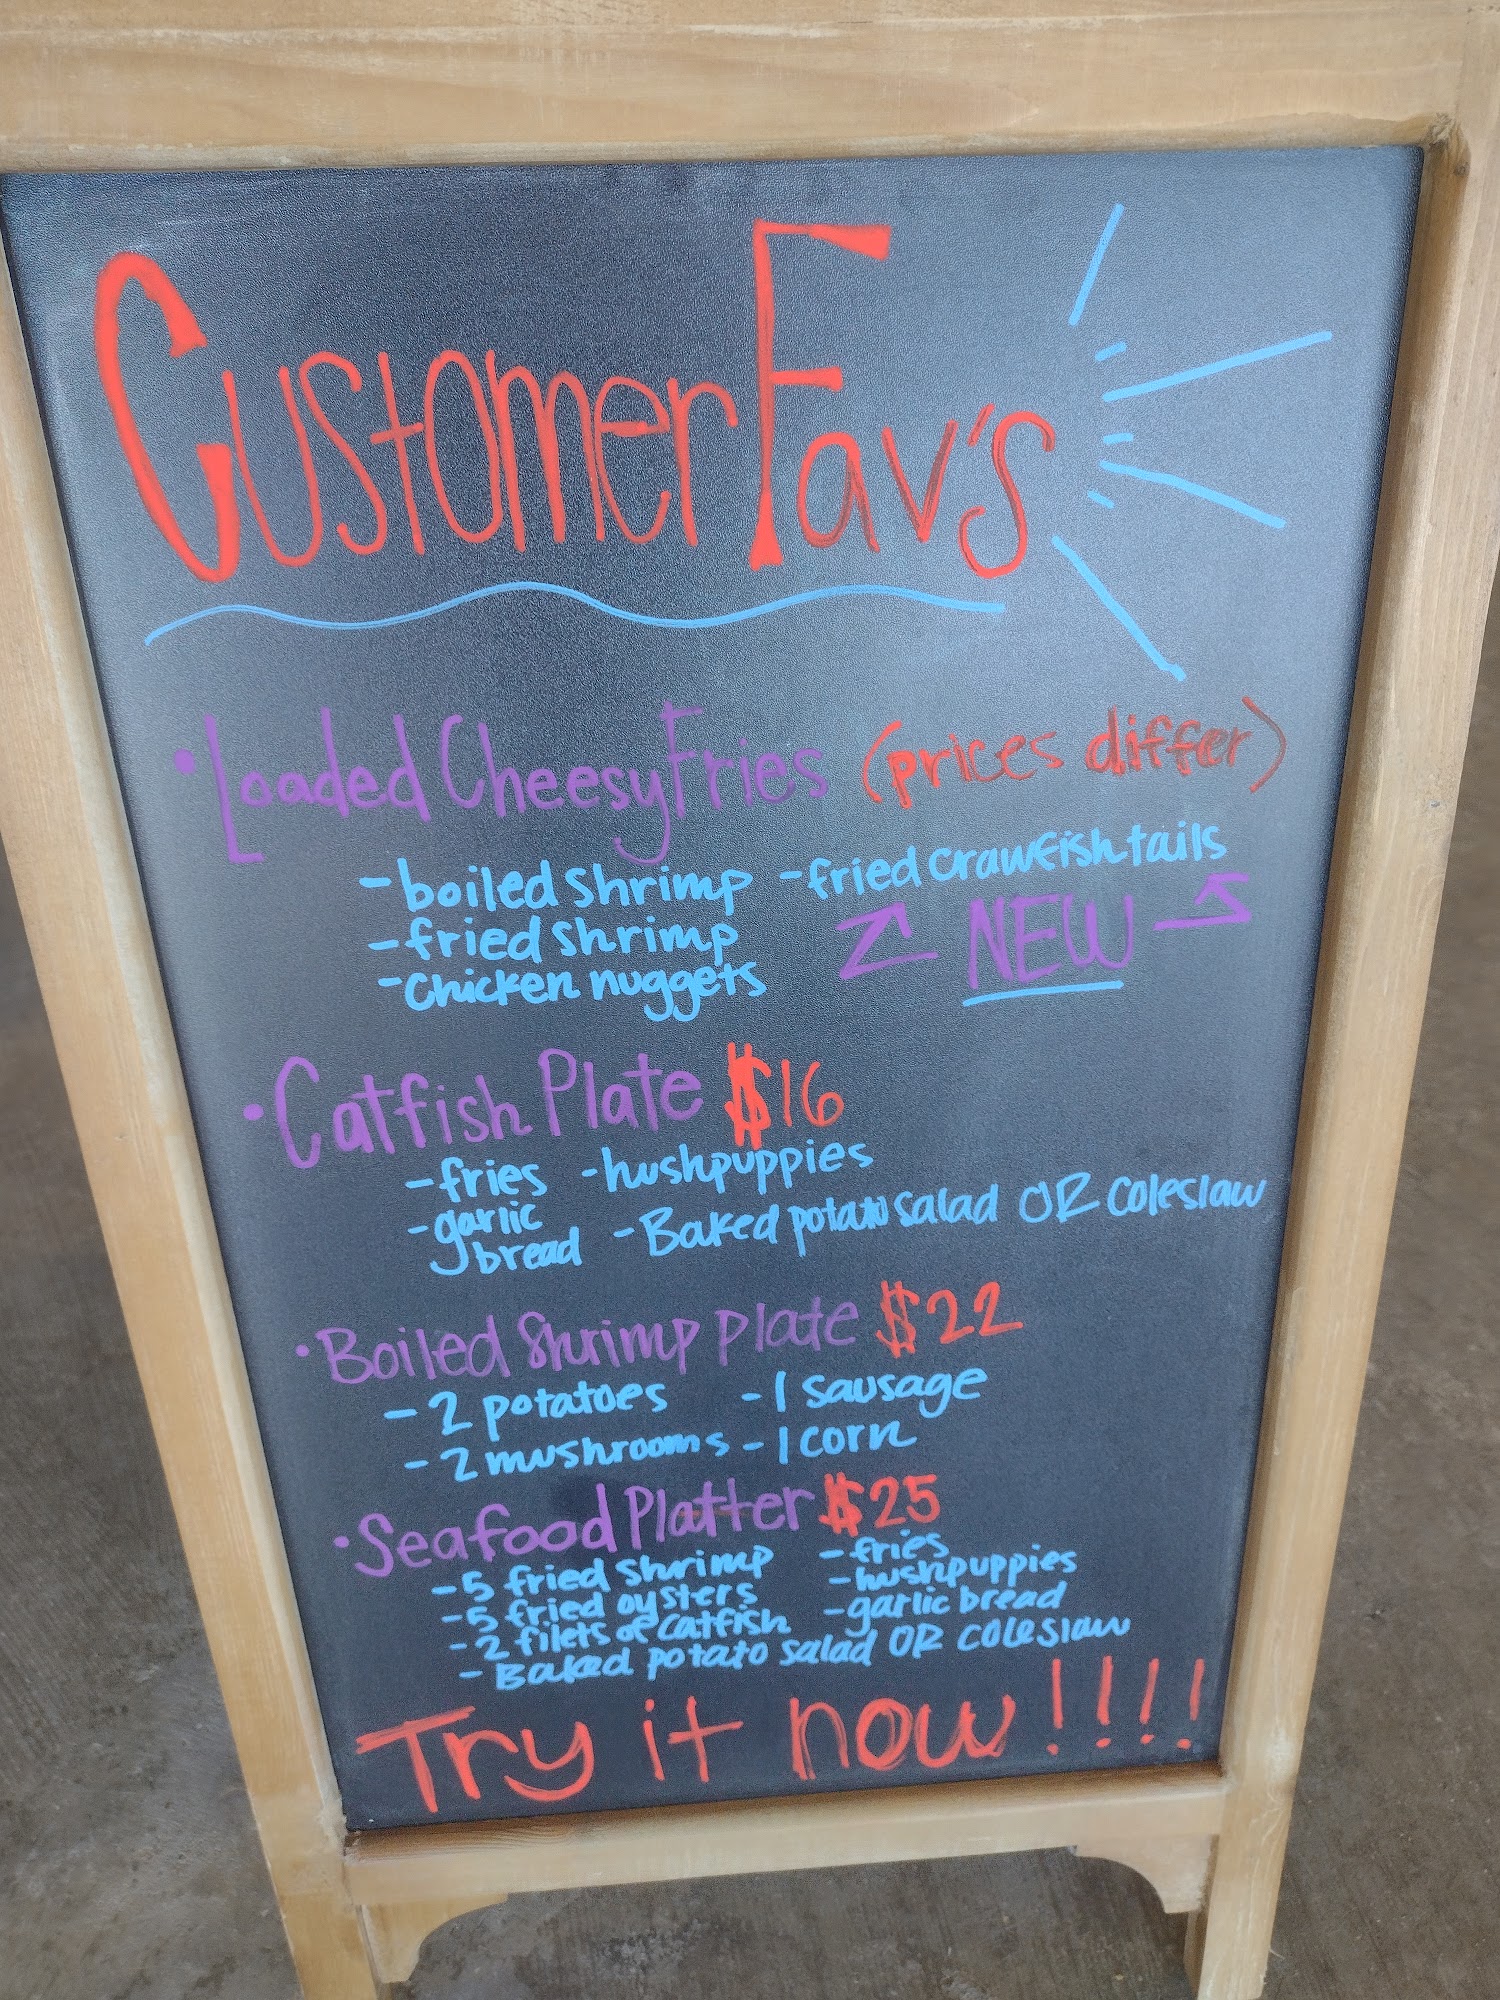 Customer Fav's
• Loaded Cheesy Fries (prices differ)
- boiled shrimp - fried crawfish tails
- fried shrimp NEW
- chicken nuggets
• Catfish Plate $16
- fries - hushpuppies
- garlic bread - Baked potato salad OR coleslaw
• Boiled Shrimp plate $22
- 2 potatoes - 1 sausage
- 2 mushrooms - 1 corn
• Seafood Platter $25
- 5 fried shrimp - fries
- 5 fried oysters - hushpuppies
- 2 filets of catfish - garlic bread
- Baked potato salad OR coleslaw
Try it now!!!!